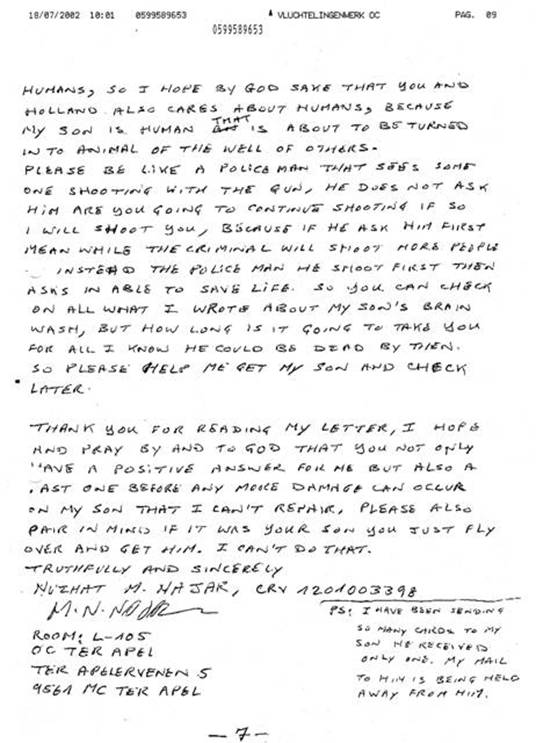 18/07/2002 10:01 0599589653 VLUCHTELINGENWERK OC PAG. 09
0599589653
HUMANS, SO I HOPE BY GOD SAKE THAT YOU AND
HOLLAND ALSO CARES ABOUT HUMANS, BECAUSE
MY SON IS HUMAN THAT IS ABOUT TO BE TURNED
IN TO ANIMAL OF THE WELL OF OTHERS.
PLEASE BE LIKE A POLICE MAN THAT SEES SOME
ONE SHOOTING WITH THE GUN, HE DOES NOT ASK
HIM ARE YOU GOING TO CONTINUE SHOOTING IF SO
I WILL SHOOT YOU, BECAUSE IF HE ASK HIM FIRST
MEAN WHILE THE CRIMINAL WILL SHOOT MORE PEOPLE
INSTEAD THE POLICE MAN HE SHOOT FIRST THEN
ASKS IN ABLE TO SAVE LIFE. SO YOU CAN CHECK
ON ALL WHAT I WROTE ABOUT MY SON'S BRAIN
WASH, BUT HOW LONG IS IT GOING TO TAKE YOU
FOR ALL I KNOW HE COULD BE DEAD BY THEN.
SO PLEASE HELP ME GET MY SON AND CHECK
LATER.
THANK YOU FOR READING MY LETTER, I HOPE
AND PRAY BY AND TO GOD THAT YOU NOT ONLY
AVE A POSITIVE ANSWER FOR ME BUT ALSO A
AST ONE BEFORE ANY MORE DAMAGE CAN OCCUR
ON MY SON THAT I CAN'T REPAIR, PLEASE ALSO
PAIR IN MIND IF IT WAS YOUR SON YOU JUST FLY
OVER AND GET HIM. I CAN'T DO THAT.
TRUTHFULLY AND SINCERELY
NUZHAT M. NAJAR, CRV 1201003398
M.N. NAJAR
ROOM: L-105
OC TER APEL
TER APELERVENEN 5
9561 MC TER APEL
PS: I HAVE BEEN SENDING
SO MANY CARDS TO MY
SON HE RECEIVED
ONLY ONE. MY MAIL
TO HIM IS BEING HELD
AWAY FROM HIM.
— 7 —